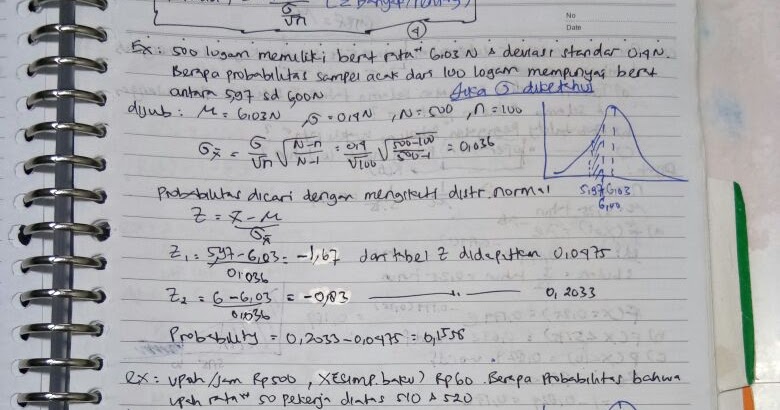 σ
√n
4
No
Date
Ex: 500 logam memiliki berat rata" 6,03 N & deviasi standar 0,4 N.
Berapa probabilitas sampel acak dari 100 logam mempunyai berat
antara 5,97 sd 6,00 N Jika σ diketahui
dijwb: M = 6,03N , σ = 0,4N , N = 500 , n = 100
σx̄ = σ/√n √(N-n/N-1) = 0,4/√100 √(500-100/500-1) = 0,036
5,97 6,03
6,00
Probabilitas dicari dengan mengikuti distr. normal
Z = x̄ - M / σx̄
Z1 = 5,97 - 6,03 / 0,036 = -1,67 dari tabel Z didapatkan 0,0475
Z2 = 6 - 6,03 / 0,036 = -0,83 0,2033
Probability = 0,2033 - 0,0475 = 0,1558
Ex: upah/jam Rp500 , (simp. baku) Rp60. Berapa probabilitas bahwa
upah rata" 50 pekerja diatas 510 & 520